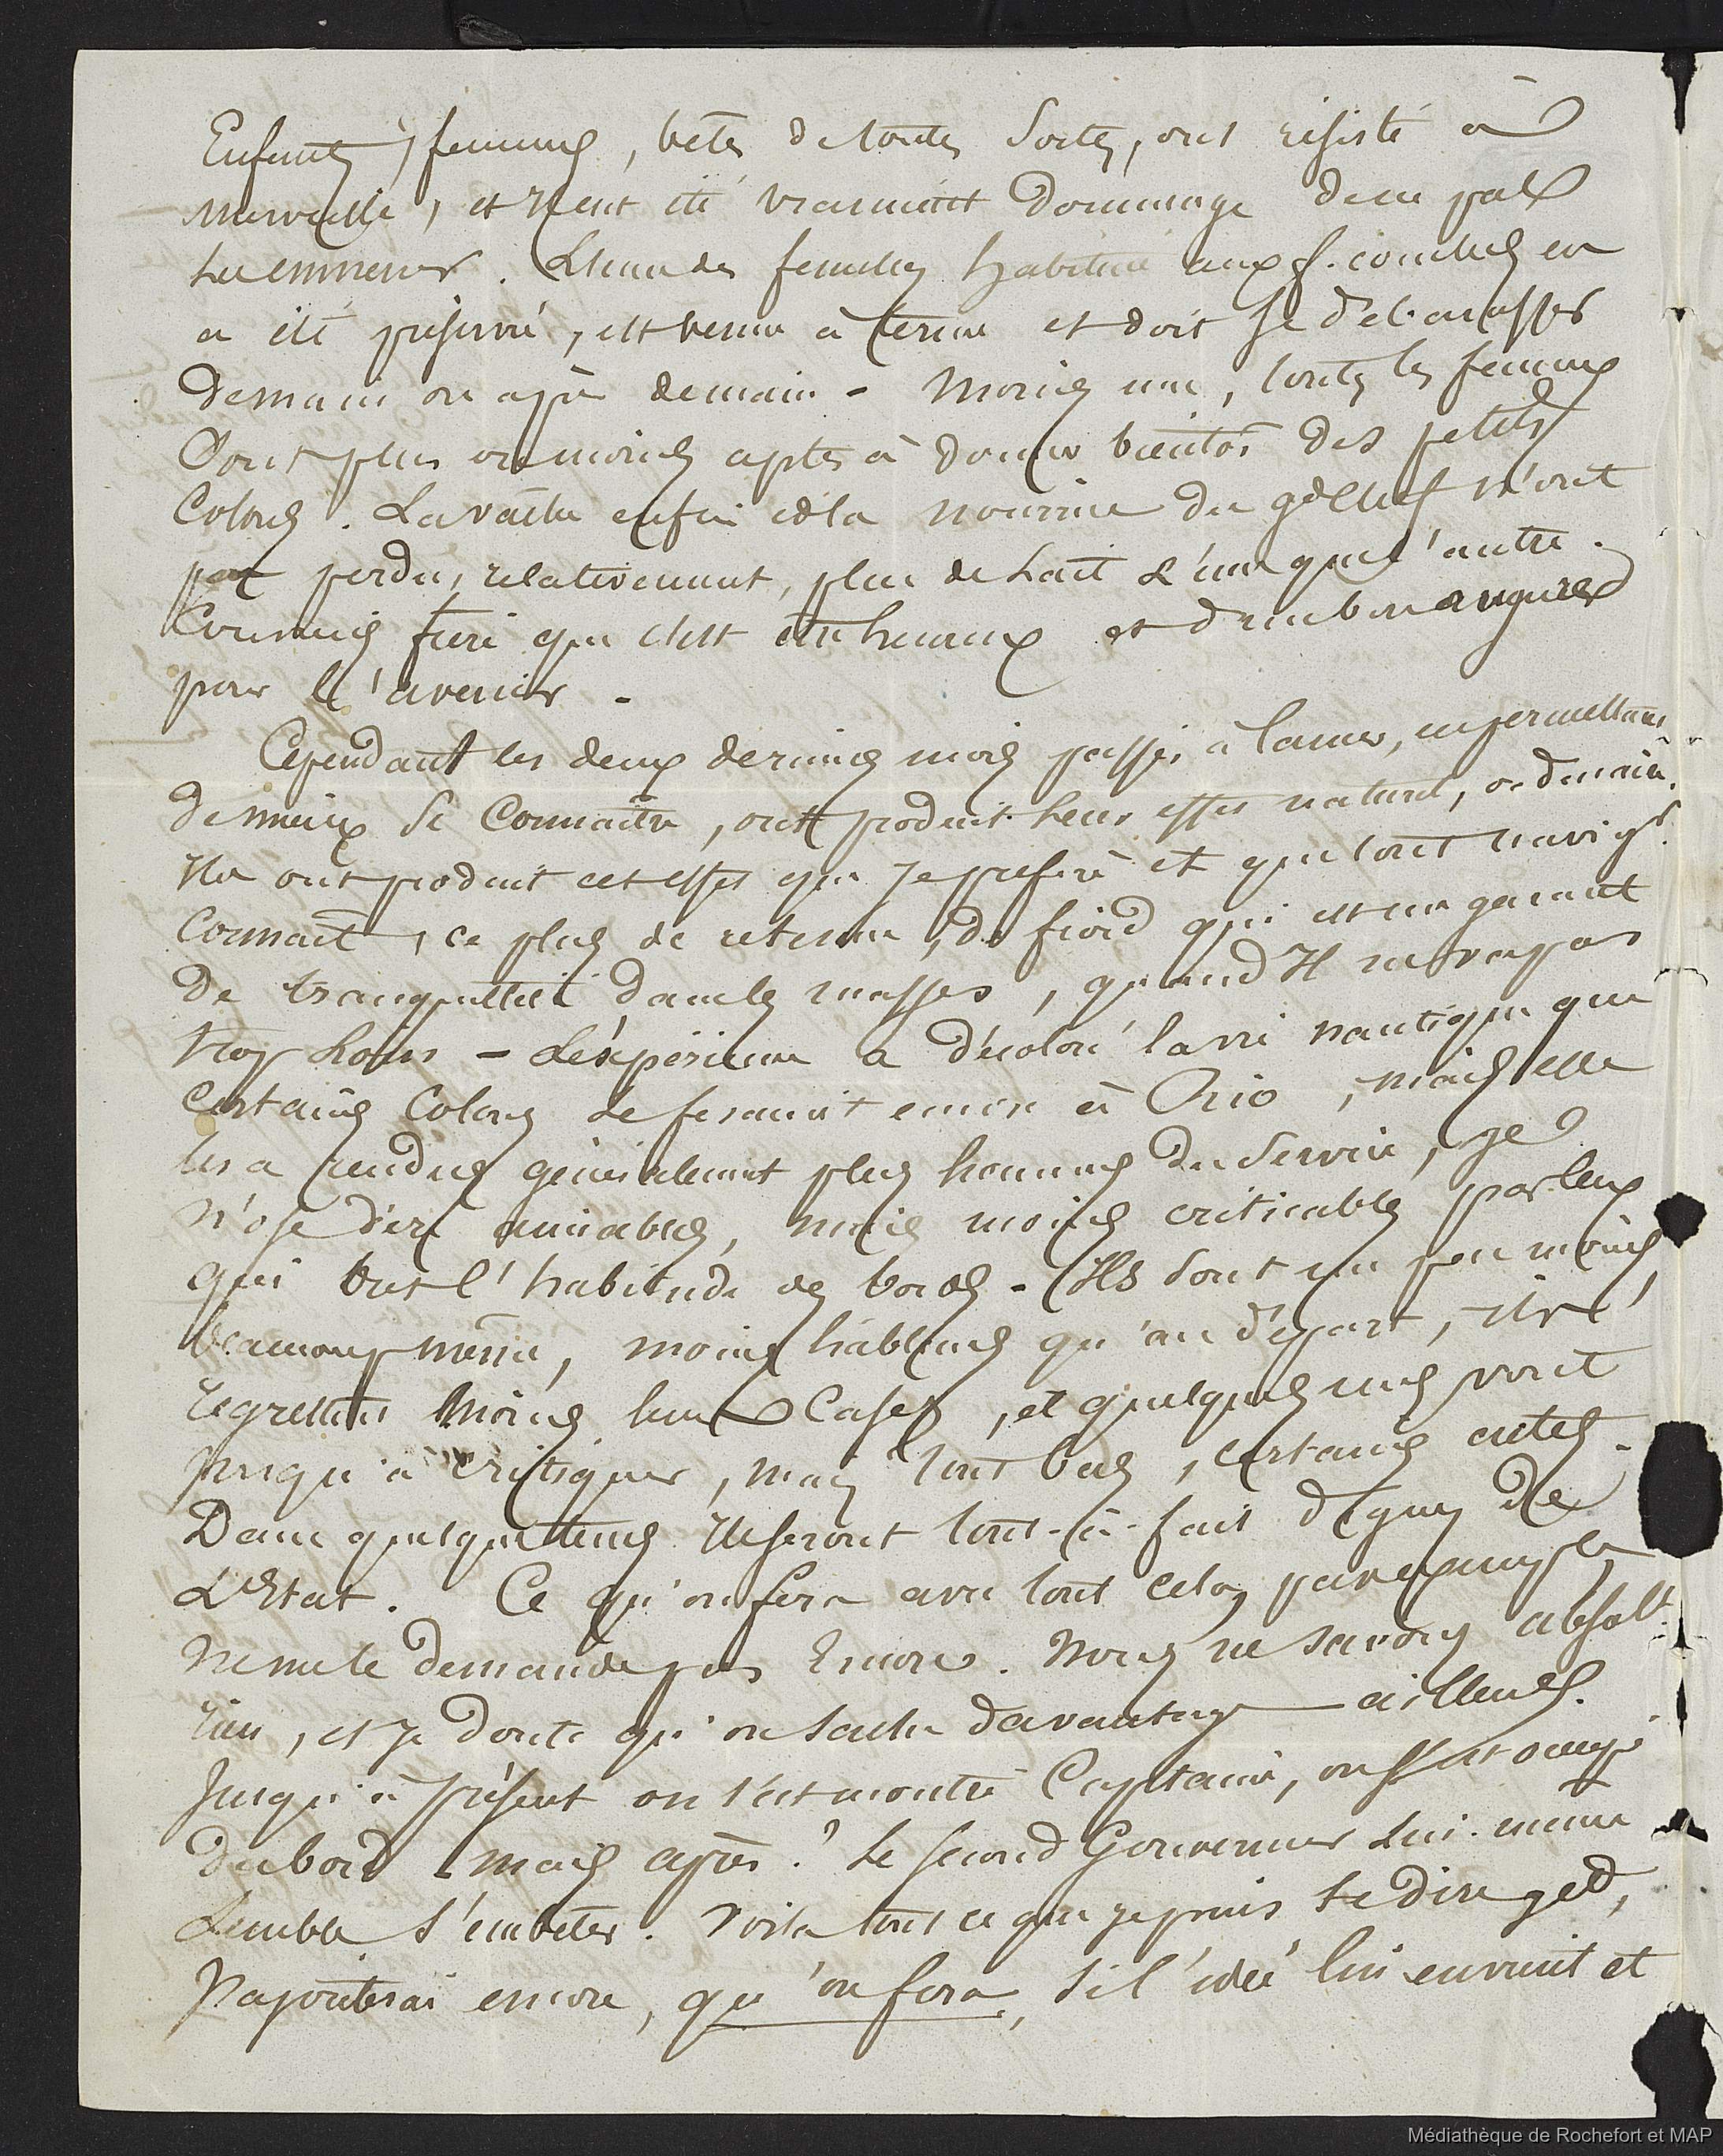 Enfants, femmes, bêtes de toutes Sortes, ont résisté à
merveille, et c'eut été vraiment Dommage de ne pas
les emmener. L'une des femelles habituée aux f. couches en
a été préservé, est venue à terme et doit se débarasser
Demain ou après demain - Moins une, toutes les femmes
Sont plus ou moins aptes à donner bientôt des petits
Colons. La vache enfin et la nourrice du gd Chef n'ont
pas perdu, relativement, plus de Lait l'une que l'autre.
Convenez frère que c'est être heureux et d'un bon augure
pour l'avenir -
Cependant les deux derniers mois passés à la mer, en permettant
de mieux se Connaître, ont produit leur effet naturel, ordinaire.
Ils ont produit cet effet que je préfère et que tout navigt.
Connait, ce plus de retenue, de froid qui est un garant
De tranquillité dans les masses, quand Il ne va pas
trop Loin - L'éxpérience a décoloré la vie nautique que
Certains Colons se fesaient encore à Rio, mais elle
les a rendus généralement plus hommes du Service, je
n'ose dire aimables, mais moins criticables par ceux
qui ont l'habitude des bords - Ils sont un peu moins,
beaucoup même, moins hâbleurs qu'au départ, ils
regrettent moins leurs Cafés, et quelques uns vont
jusqu'à critiquer, mais tout bas, certains actes -
Dans quelque tems Ils seront tout-à-fait dignes de
L'Etat. Ce qu'on fera avec tout cela, par exemple,
ne me le demande pas Encore. Nous ne savons absolt.
rien, et je doute qu'on sache davantage ailleurs.
Jusqu'à présent on s'est montré Capitaine, on s'est occupé
du bord - mais après ? Le second Gouverneur Lui-même
Semble s'embêter. Voila tout ce que je puis te dire gd,
J'ajouterai encore, qu'on fera, si l'idée lui en vient et
Médiathèque de Rochefort et MAP